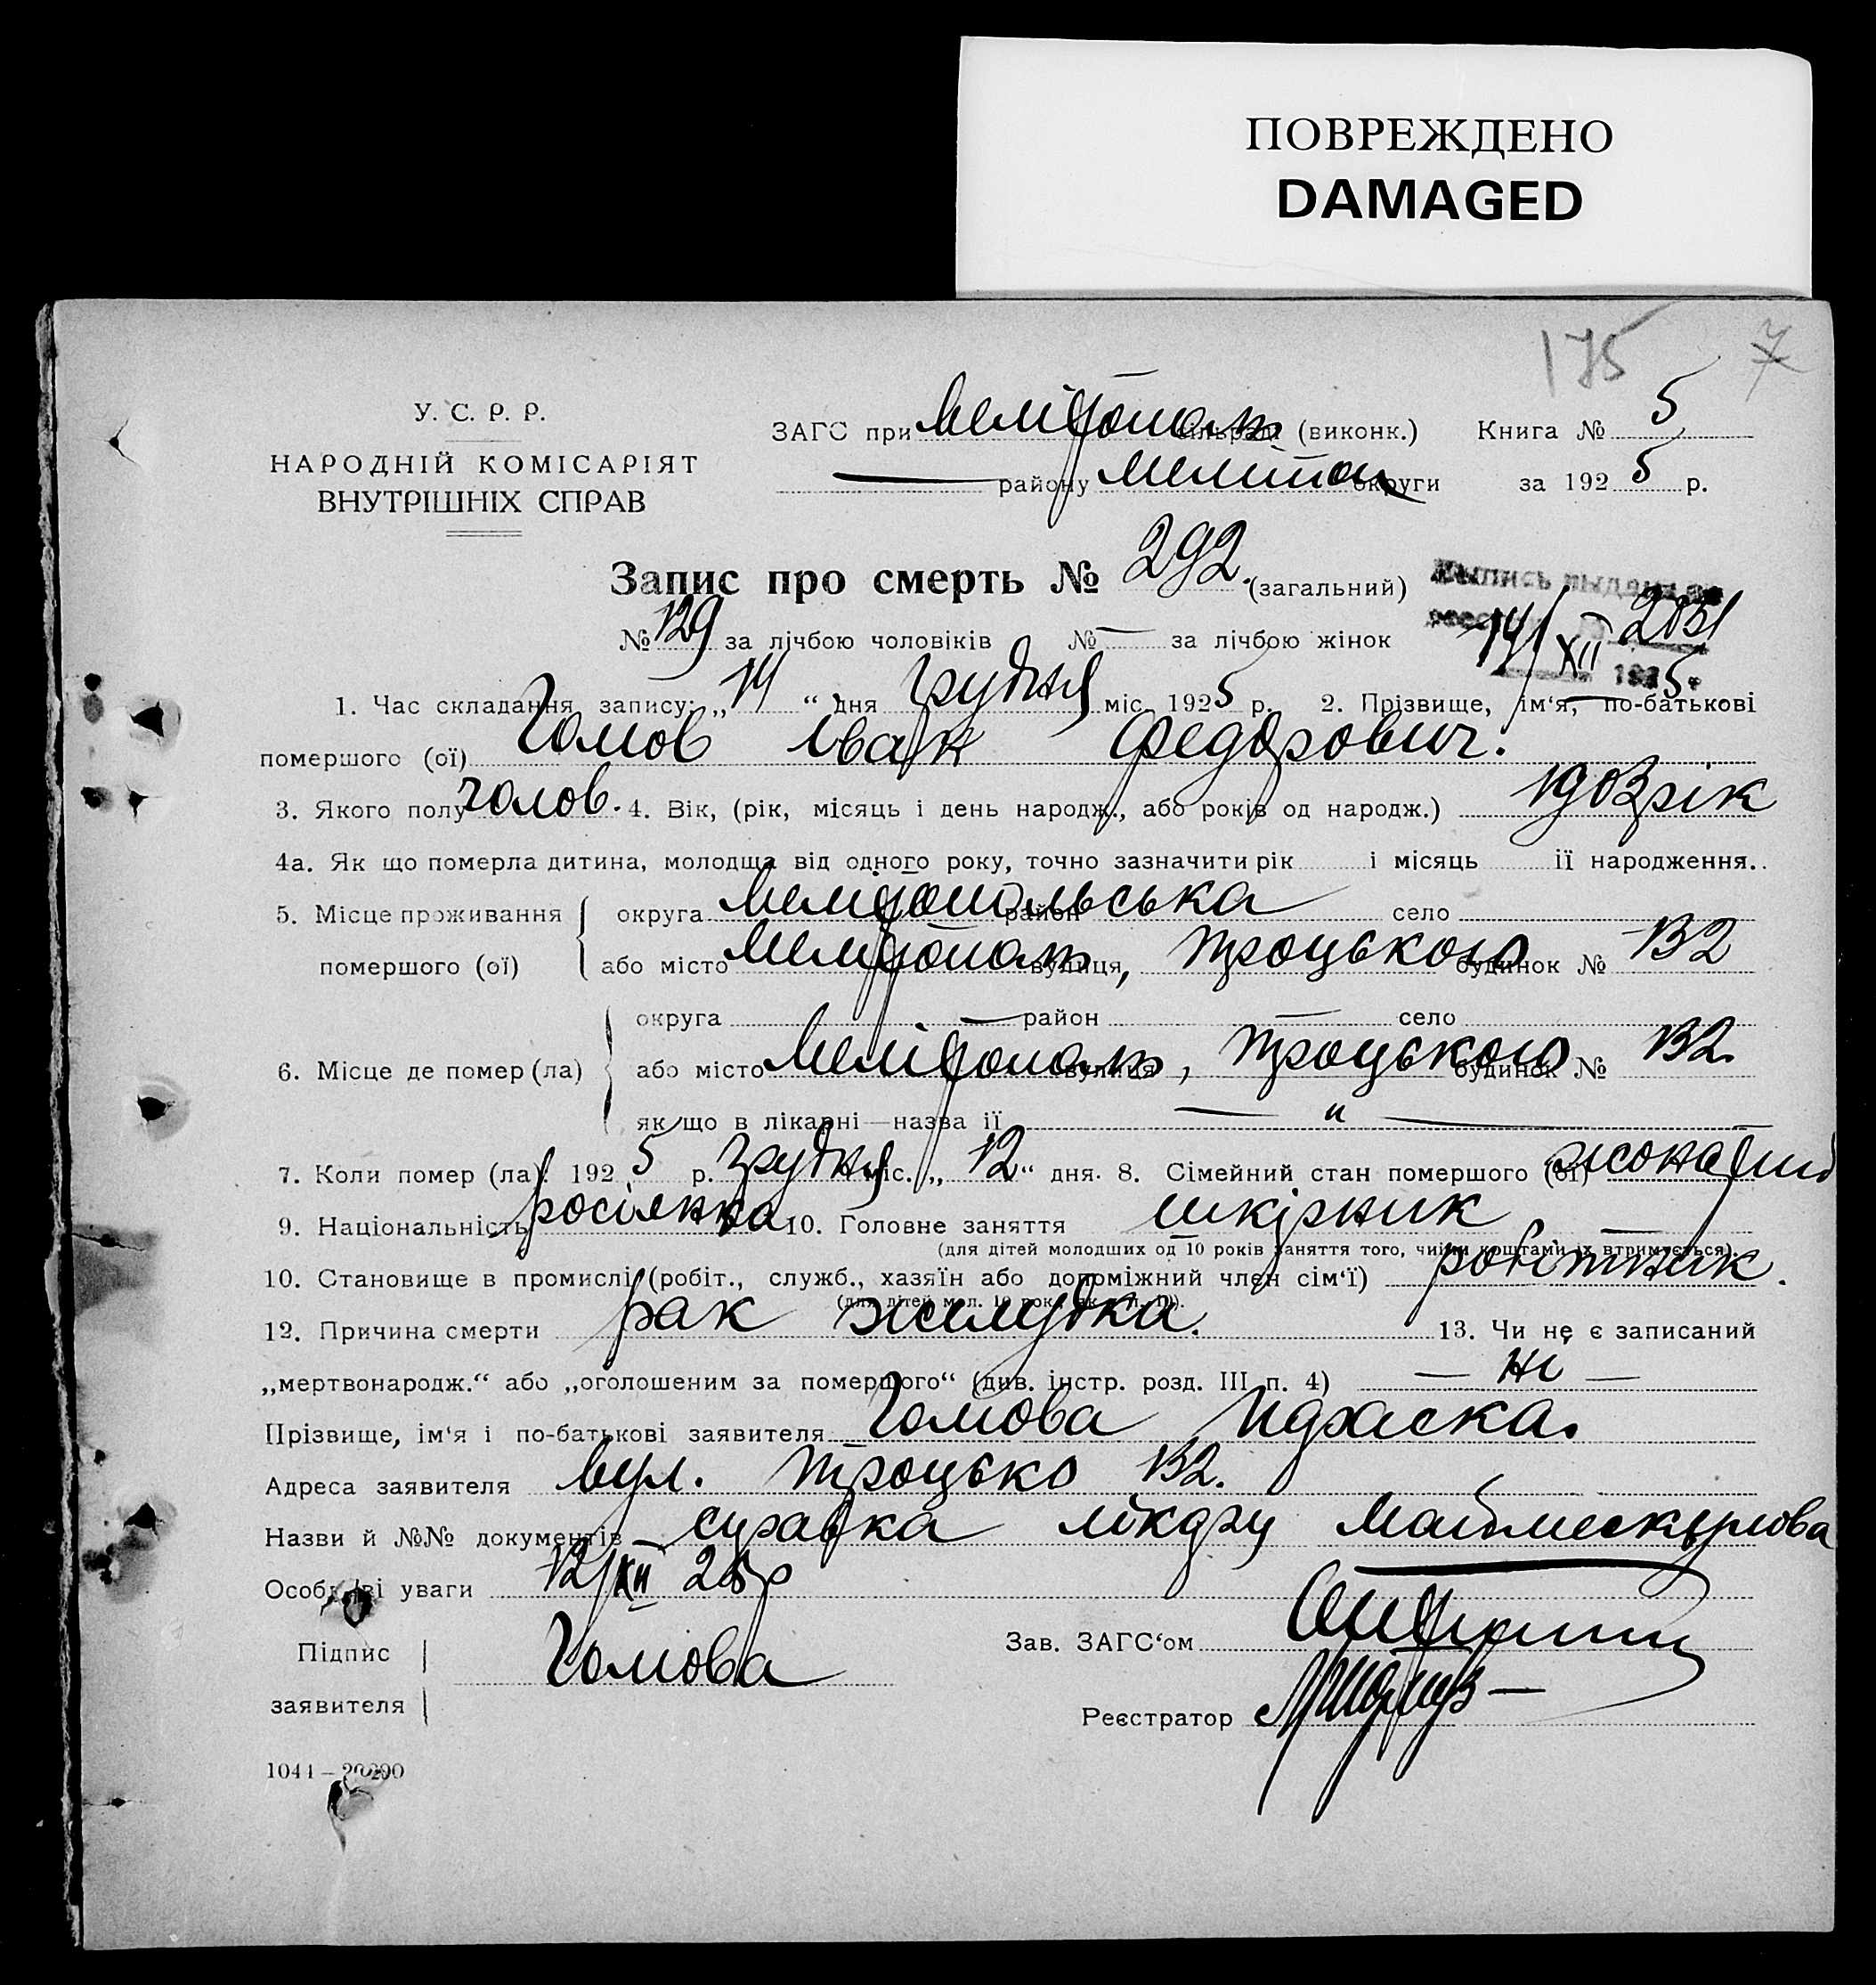 ПОВРЕЖДЕНО
DAMAGED
175 7
У. С. Р. Р.
НАРОДНІЙ КОМІСАРІЯТ
ВНУТРІШНІХ СПРАВ
ЗАГС при Мелітополь сільраді (виконк.) Книга № 5
— району Мелітоп округи за 1925 р.
Запис про смерть № 292. (загальний)
Выпись выдана за
№ 129 за лічбою чоловіків № — за лічбою жінок
14/XII 1925
1. Час складання запису: „14“ дня грудня міс. 1925 р. 2. Прізвище, ім‘я, по-батькові
помершого (ої) Іван Федорович.
3. Якого полу чолов. 4. Вік, (рік, місяць і день народж., або років од народж.) рік
4а. Як що померла дитина, молодща від одного року, точно зазначити рік і місяць її народження..
5. Місце проживання помершого (ої) округа Мелітопольська район село
або місто Мелітополь, вулиця, Троцького будинок № 132
6. Місце де помер (ла) округа — район — село
або місто Мелітополь, вулиця Троцького будинок № 132.
як що в лікарні—назва її — „ —
7. Коли помер (ла). 1925 р. грудня міс. „12“ дня. 8. Сімейний стан помершого (ої) жонатий
9. Національність росіянка 10. Головне заняття шкірник
(для дітей молодших од 10 років заняття того, чиїми коштами їх втримується).
10. Становище в промислі (робіт., служб., хазяїн або допоміжний член сім‘ї) робітник.
(для дітей мол. 10 рок. як в п. 10).
12. Причина смерти рак желудка. 13. Чи не є записаний
„мертвонародж.“ або „оголошеним за помершого“ (див. інстр. розд. III п. 4) — ні —
Прізвище, ім‘я і по-батькові заявителя
Адреса заявителя вул. Троцько 132.
Назви й №№ документів справка лікарю
Особливі уваги 12/XII 25 р
Підпис
заявителя
Зав. ЗАГС‘ом
Реєстратор
1041—20200